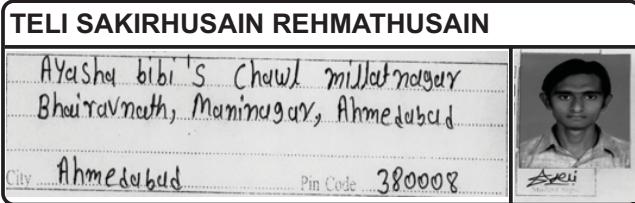 TELI SAKIRHUSAIN REHMATHUSAIN
Ayasha bibi's Chawl millatnagar
Bhairavnath, Maninagar, Ahmedabad
City Ahmedabad Pin Code 380008